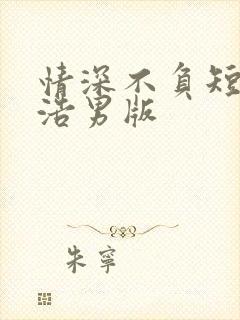 情深不负短
浩男版
朱寧